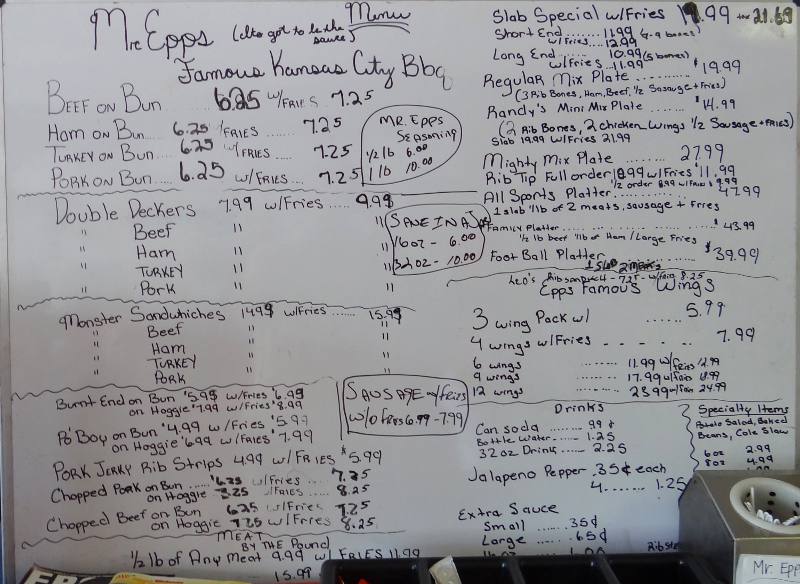 Menu
Mr. Epps (Also got to be the sauce)
Famous Kansas City Bbq
BEEF ON BUN 6.25 W/FRIES 7.25
HAM ON BUN 6.25 W/FRIES 7.25
TURKEY ON BUN 6.25 W/FRIES 7.25
PORK ON BUN 6.25 W/FRIES 7.25
MR. EPPS
SEASONING
1/2 lb 6.00
1 lb 10.00
Double Deckers 7.99 w/Fries 9.99
" Beef " "
" Ham " "
" TURKEY " "
" Pork " "
SAUCE IN A JAR
16oz - 6.00
32oz - 10.00
Monster Sandwhiches 14.99 w/Fries 15.99
" Beef " "
" Ham " "
" TURKEY " "
" PORK " "
Burnt End on Bun $5.99 w/Fries $6.99
on Hoggie $7.99 w/Fries $8.99
Po'Boy on Bun $4.99 w/Fries $5.99
on Hoggie $6.99 w/Fries $7.99
SAUSAGE w/fries
w/o Fries 6.99 - 7.99
PORK JERKY RIB STRIPS 4.99 w/FRIES $5.99
Chopped Pork on Bun $6.25 w/Fries 7.25
on Hoggie 7.25 w/Fries 8.25
Chopped Beef on Bun 6.25 w/Fries 7.25
on Hoggie 7.25 w/Fries 8.25
MEAT
BY THE POUND
1/2 lb of Any Meat 9.99 w/ FRIES 11.99
15.99
Slab Special w/Fries 19.99 21.69
Short End 11.99 (7-9 bones)
w/Fries 12.99
Long End 10.99 (5 bones)
w/fries 11.99
Regular Mix Plate $19.99
(3 Rib Bones, Ham, Beef, 1/2 Sausage + Fries)
Randy's Mini Mix Plate $14.99
(2 Rib Bones, 2 chicken wings 1/2 Sausage + FRIES)
Slab 19.99 w/Fries 21.99
Mighty Mix Plate 27.99
Rib Tip Full order 10.99 w/Fries $11.99
1/2 order 8.99 w/Fries $9.99
All Sports Platter 47.99
1 slab 1 lb of 2 meats, sausage + fries
Family Platter $43.99
1/2 lb beef 1 lb of Ham / Large Fries
Foot Ball Platter $39.99
1 Slab 2 meats
Leo's Rib sandwich - 7.25 - w/fries 8.25
Epps Famous Wings
3 wing Pack w/ 5.99
4 wings w/Fries 7.99
6 wings 11.99 w/fries 12.99
9 wings 17.99 w/fries 18.99
12 wings 23.99 w/fries 24.99
Drinks
Can soda 99¢
Bottle Water 1.25
32 oz Drink 2.25
Jalapeno Pepper .35¢ each
4 1.25
Extra Sauce
Small .35¢
Large .65¢
Specialty Items
Potato Salad, Baked
Beans, Cole Slaw
6oz 2.99
8oz 4.99
Mr. Epp